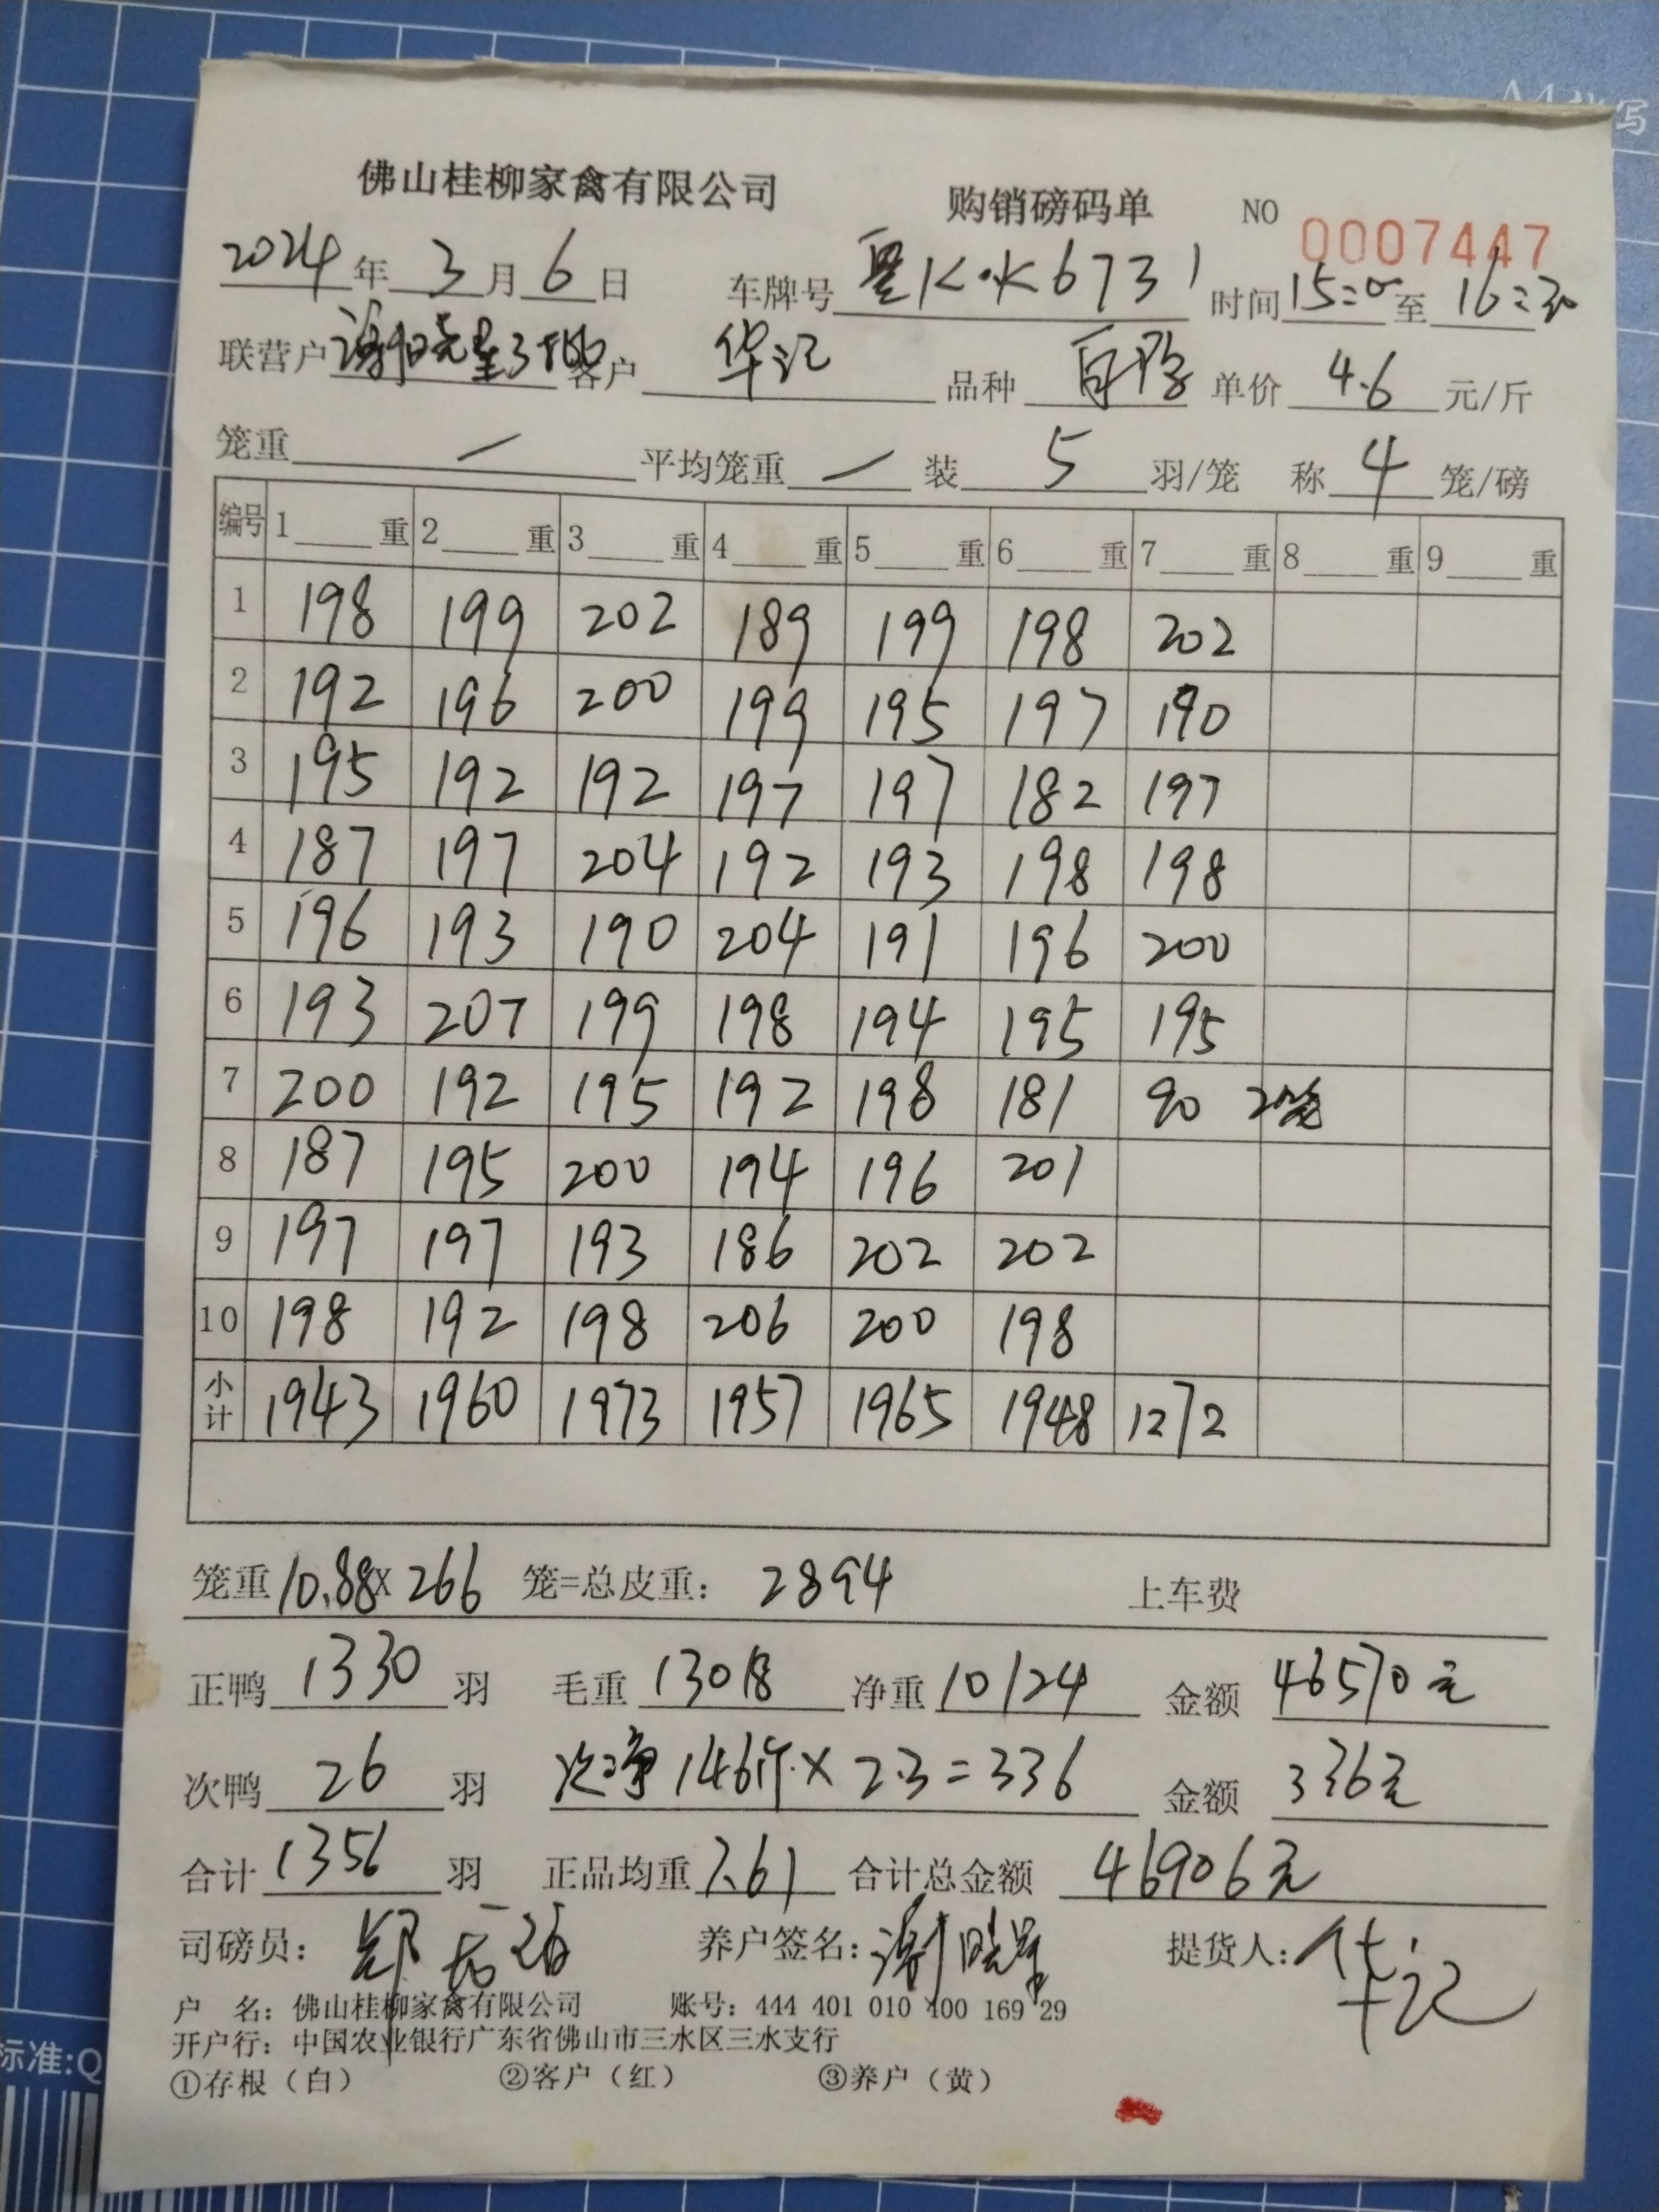 A4
写
佛山桂柳家禽有限公司 购销磅码单 NO 0007447
2024年3月6日 车牌号 K·K6731 时间15:0至16:30
联营户 谢晓星3 客户 华记 品种 单价 4.6 元/斤
笼重 一 平均笼重 一 装 5 羽/笼 称 4 笼/磅
编号 1 重 2 重 3 重 4 重 5 重 6 重 7 重 8 重 9 重
1 198 199 202 189 199 198 202
2 192 196 200 199 195 197 190
3 195 192 192 197 197 182 197
4 187 197 204 192 193 198 198
5 196 193 190 204 191 196 200
6 193 207 199 198 194 195 195
7 200 192 195 192 198 181 90 2笼
8 187 195 200 194 196 201
9 197 197 193 186 202 202
10 198 192 198 206 200 198
小计 1943 1960 1973 1957 1965 1948 1272
笼重 10.88 X 266 笼=总皮重: 2894 上车费
正鸭 1330 羽 毛重 13018 净重 10124 金额 46570元
次鸭 26 羽 次净 146斤 × 2.3 = 336 金额 336元
合计 1356 羽 正品均重 7.61 合计总金额 46906元
司磅员: 郑 养户签名: 谢晓星 提货人: 华记
户 名: 佛山桂柳家禽有限公司 账号: 444 401 010 400 169 29
开户行: 中国农业银行广东省佛山市三水区三水支行
①存根（白） ②客户（红） ③养户（黄）
标准:Q